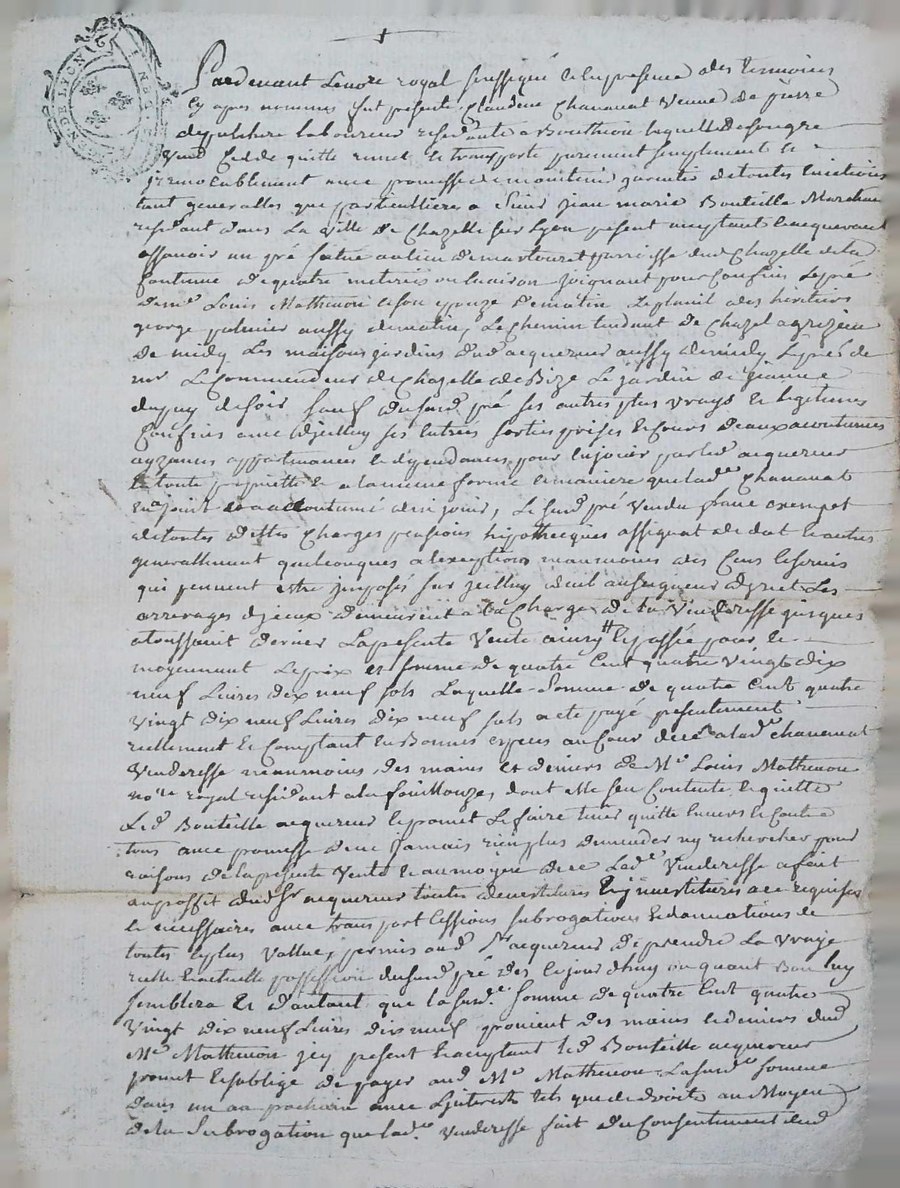 DE LYON
Pardevant Le no.re royal soussigné et en presence des temoins
cy apres nommes fut presente Claudine Chanavat veuve de pierre
laboureur residante a Boutheon laquelle de son gre
vend cede quitte remet et transporte purement simplement et
irrevocablement avec promesse de maintenir garentir de toutes evictions
tant generalles que particullieres a Sieur Jean marie Bouteille Marchand
residant dans La ville de Chazelle sur Lyon present acceptant et acquereur
assavoir un pré situé au lieu de martouret parroisse dud. Chazelle de la
contenue de quatre meterées ou environ joignant pour Confins le pré
de m.e Louis Mathevon et son epouze de matin, le plassil des héritiers
george palmier aussy de matin, Le chemin tendant de Chazel a grezieu
de midy Les maisons jardins dud. acquereur aussy de midy le prés de
mr Le Commandeur de Chazelle de Bize Le jardin de jeanne
dupuy de soir sauf dususd. pré ses autres plus vrays et legitimes
Confins avec d'jcelluy ses entrées sorties prises et cours d'eaux accoutumés
ayzances appartenances et dependances pour en jouir par led. acquereur
en toute proprietté et a la meme forme et maniere que lad.e Chanavat
en a jouit et accoutumé d'en jouir, Le susd. pré vendu franc exempt
de toutes dettes Charges pensions hypothecques assignat de dot et autres
generallement quelconques a l'exeption neanmoins des Cens et servis
qui peuvent estre jmposés sur jcelluy deub au seigneur direct Les
arrerages d'jceux demeurent a la Charge de la venderesse jusques
a toussaint dernier La presente vente ainsy et passée pour et
moyennant Le prix et somme de quatre Cent quatre vingt dix
neuf Livres dix neuf sols Laquelle Somme de quatre Cent quatre
vingt dix neuf Livres dix neuf sols a eté payé presentement
reellement et Comptant en Bonnes especes au Cour de ce a lad.e Chanavat
venderesse neanmoins des mains et deniers de M.e Louis Mathevon
no.re royal residant a la fouillouze, dont elle s'en Contente, et quitte
Led. Bouteille acquereur et promet Le faire tenir quitte envers et Contre
tous avec promesse de ne jamais rien plus demander ny rechercher pour
raisons de la presente Vente et au moyen de ce Lad.e Venderesse a fait
au proffit dud. Sr acquereur toutes devestitures et jnvestitures a ce requises
et necessaires avec transport cessions subrogations et donnations de
toutes et plus vallue, permis aud. Sr acquereur de prendre La vraye
reelle et actuelle possession dusud. pré des ce jourd'huy ou quant Bon luy
semblera Et d'autant que la susd.e somme de quatre Cent quatre
vingt dix neuf Livres dix neuf provient des mains et deniers dud.
M.e Mathevon jcy present et acceptant led. Bouteille acquereur
promet et s'oblige de payer aud. M.e Mathevon La susd.e somme
dans un an prochain avec L'interests tels que de droits au Moyen
de la Subrogation que lad.e venderesse fait du Consentement dud.